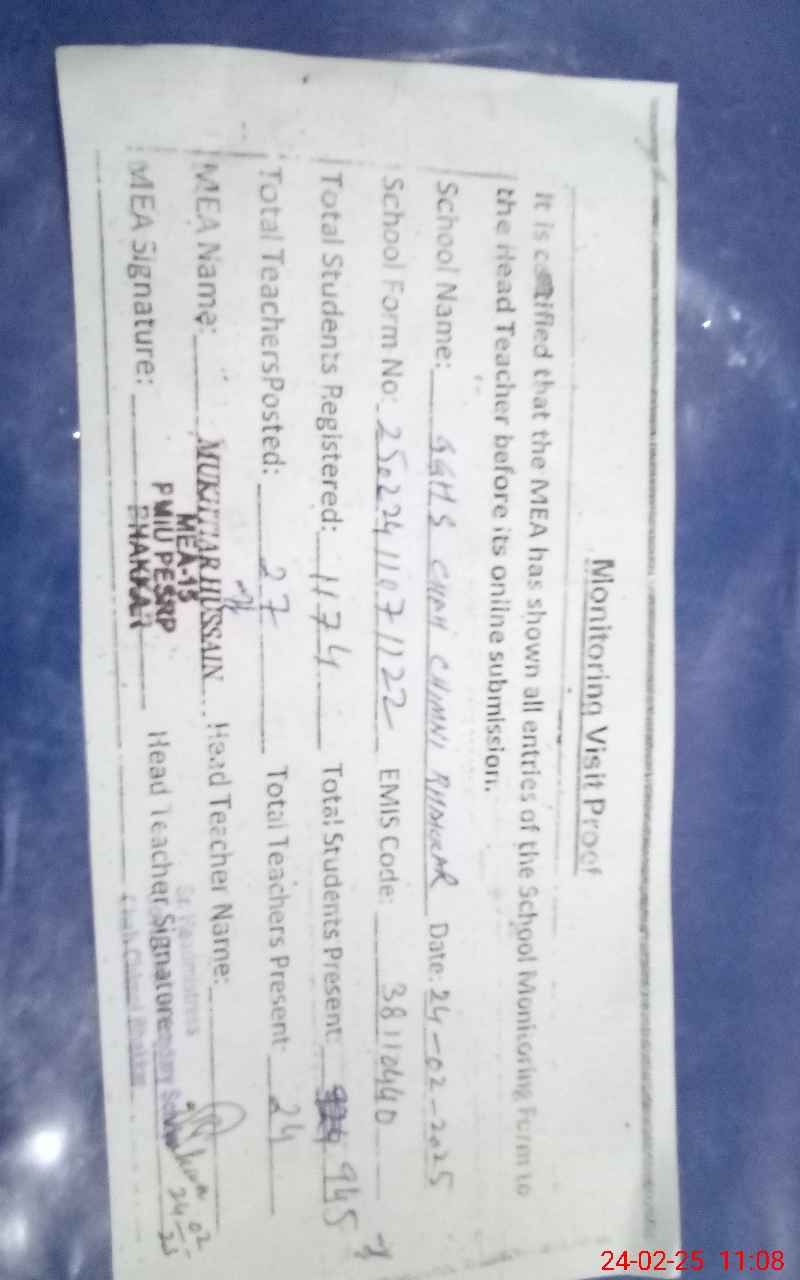 Monitoring Visit Proof
It is certified that the MEA has shown all entries of the School Monitoring Form to
the Head Teacher before its online submission.
School Name: GGHS CHAH CHIMNI BHAKKAR Date: 24-02-2025
School Form No: 25022411071122 EMIS Code: 38110440
Total Students Registered: 1174 Total Students Present: 945
Total TeachersPosted: 27 Total Teachers Present: 24
MEA Name: MUKHTIAR HUSSAIN Head Teacher Name:
MEA-15
MEA Signature: PMIU PESRP Head Teacher Signature
BHAKKAR
Sr Headmistress
Chah Chimni Bhakkar
24-02-25 11:08